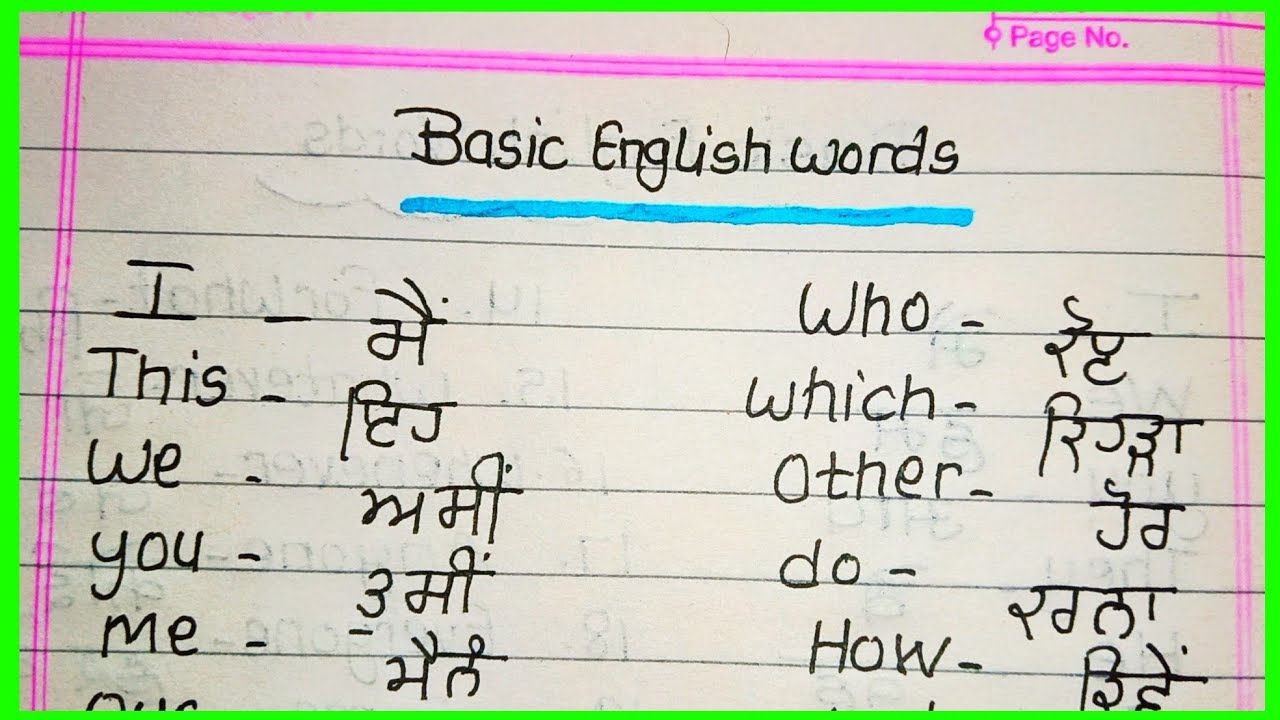 Page No.
Basic English words
I - ਮੈਂ
This - ਇਹ
we - ਅਸੀਂ
you - ਤੁਸੀਂ
me - ਮੈਨੰ
Who - ਕੌਣ
which - ਕਿਹੜਾ
Other - ਹੋਰ
do - ਕਰਨਾ
How - ਕਿਵੇਂ